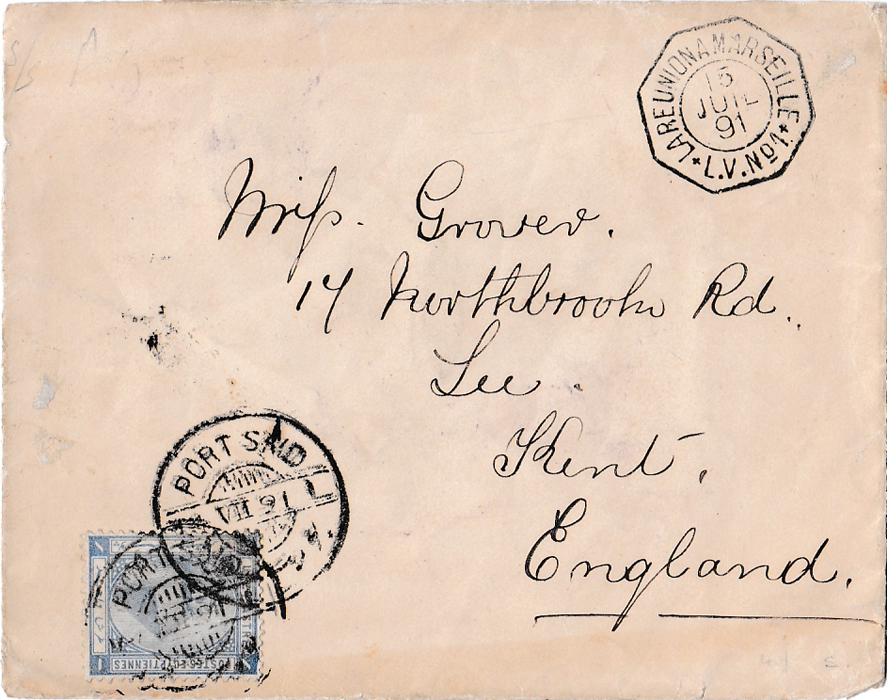 LA REUNION A MARSEILLE
15
JUIL
91
* L.V. No 1 *
Miss. Grover.
14 Northbrook Rd.
Lee.
Kent.
England.
PORT SAID
VII 91
PORT
VII 91
POSTES EGYPTIENNES
1